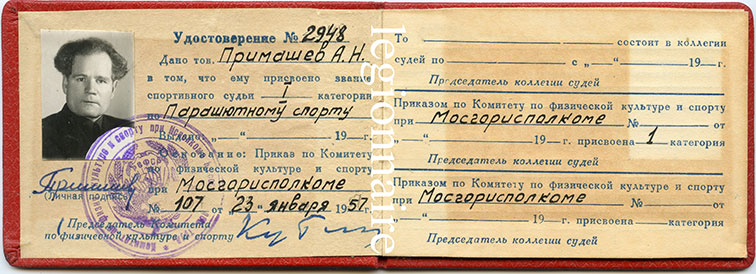 Удостоверение № 2948
Дано тов. Примашев А.Н.
в том, что ему присвоено звание
спортивного судьи I категории
по Парашютному спорту
Выдано „ — “ 19 — г.
Основание: Приказ по Комитету
по физической культуре и спорту
при Мосгорисполкоме
№ 107 от „ 23 “ января 1957 г.
(Личная подпись)
Председатель Комитета
по физической культуре и спорту
То — состоит в коллегии
судей по — с „ — “ 19 — г.
Председатель коллегии судей
Приказом по Комитету по физической культуре и спорту
при Мосгорисполкоме № — от
„ — “ 19 — г. присвоена 1 категория
Председатель коллегии судей
Приказом по Комитету по физической культуре и спорту
при Мосгорисполкоме № — от
„ — “ 19 — г. присвоена — категория
Председатель коллегии судей
legionnaire